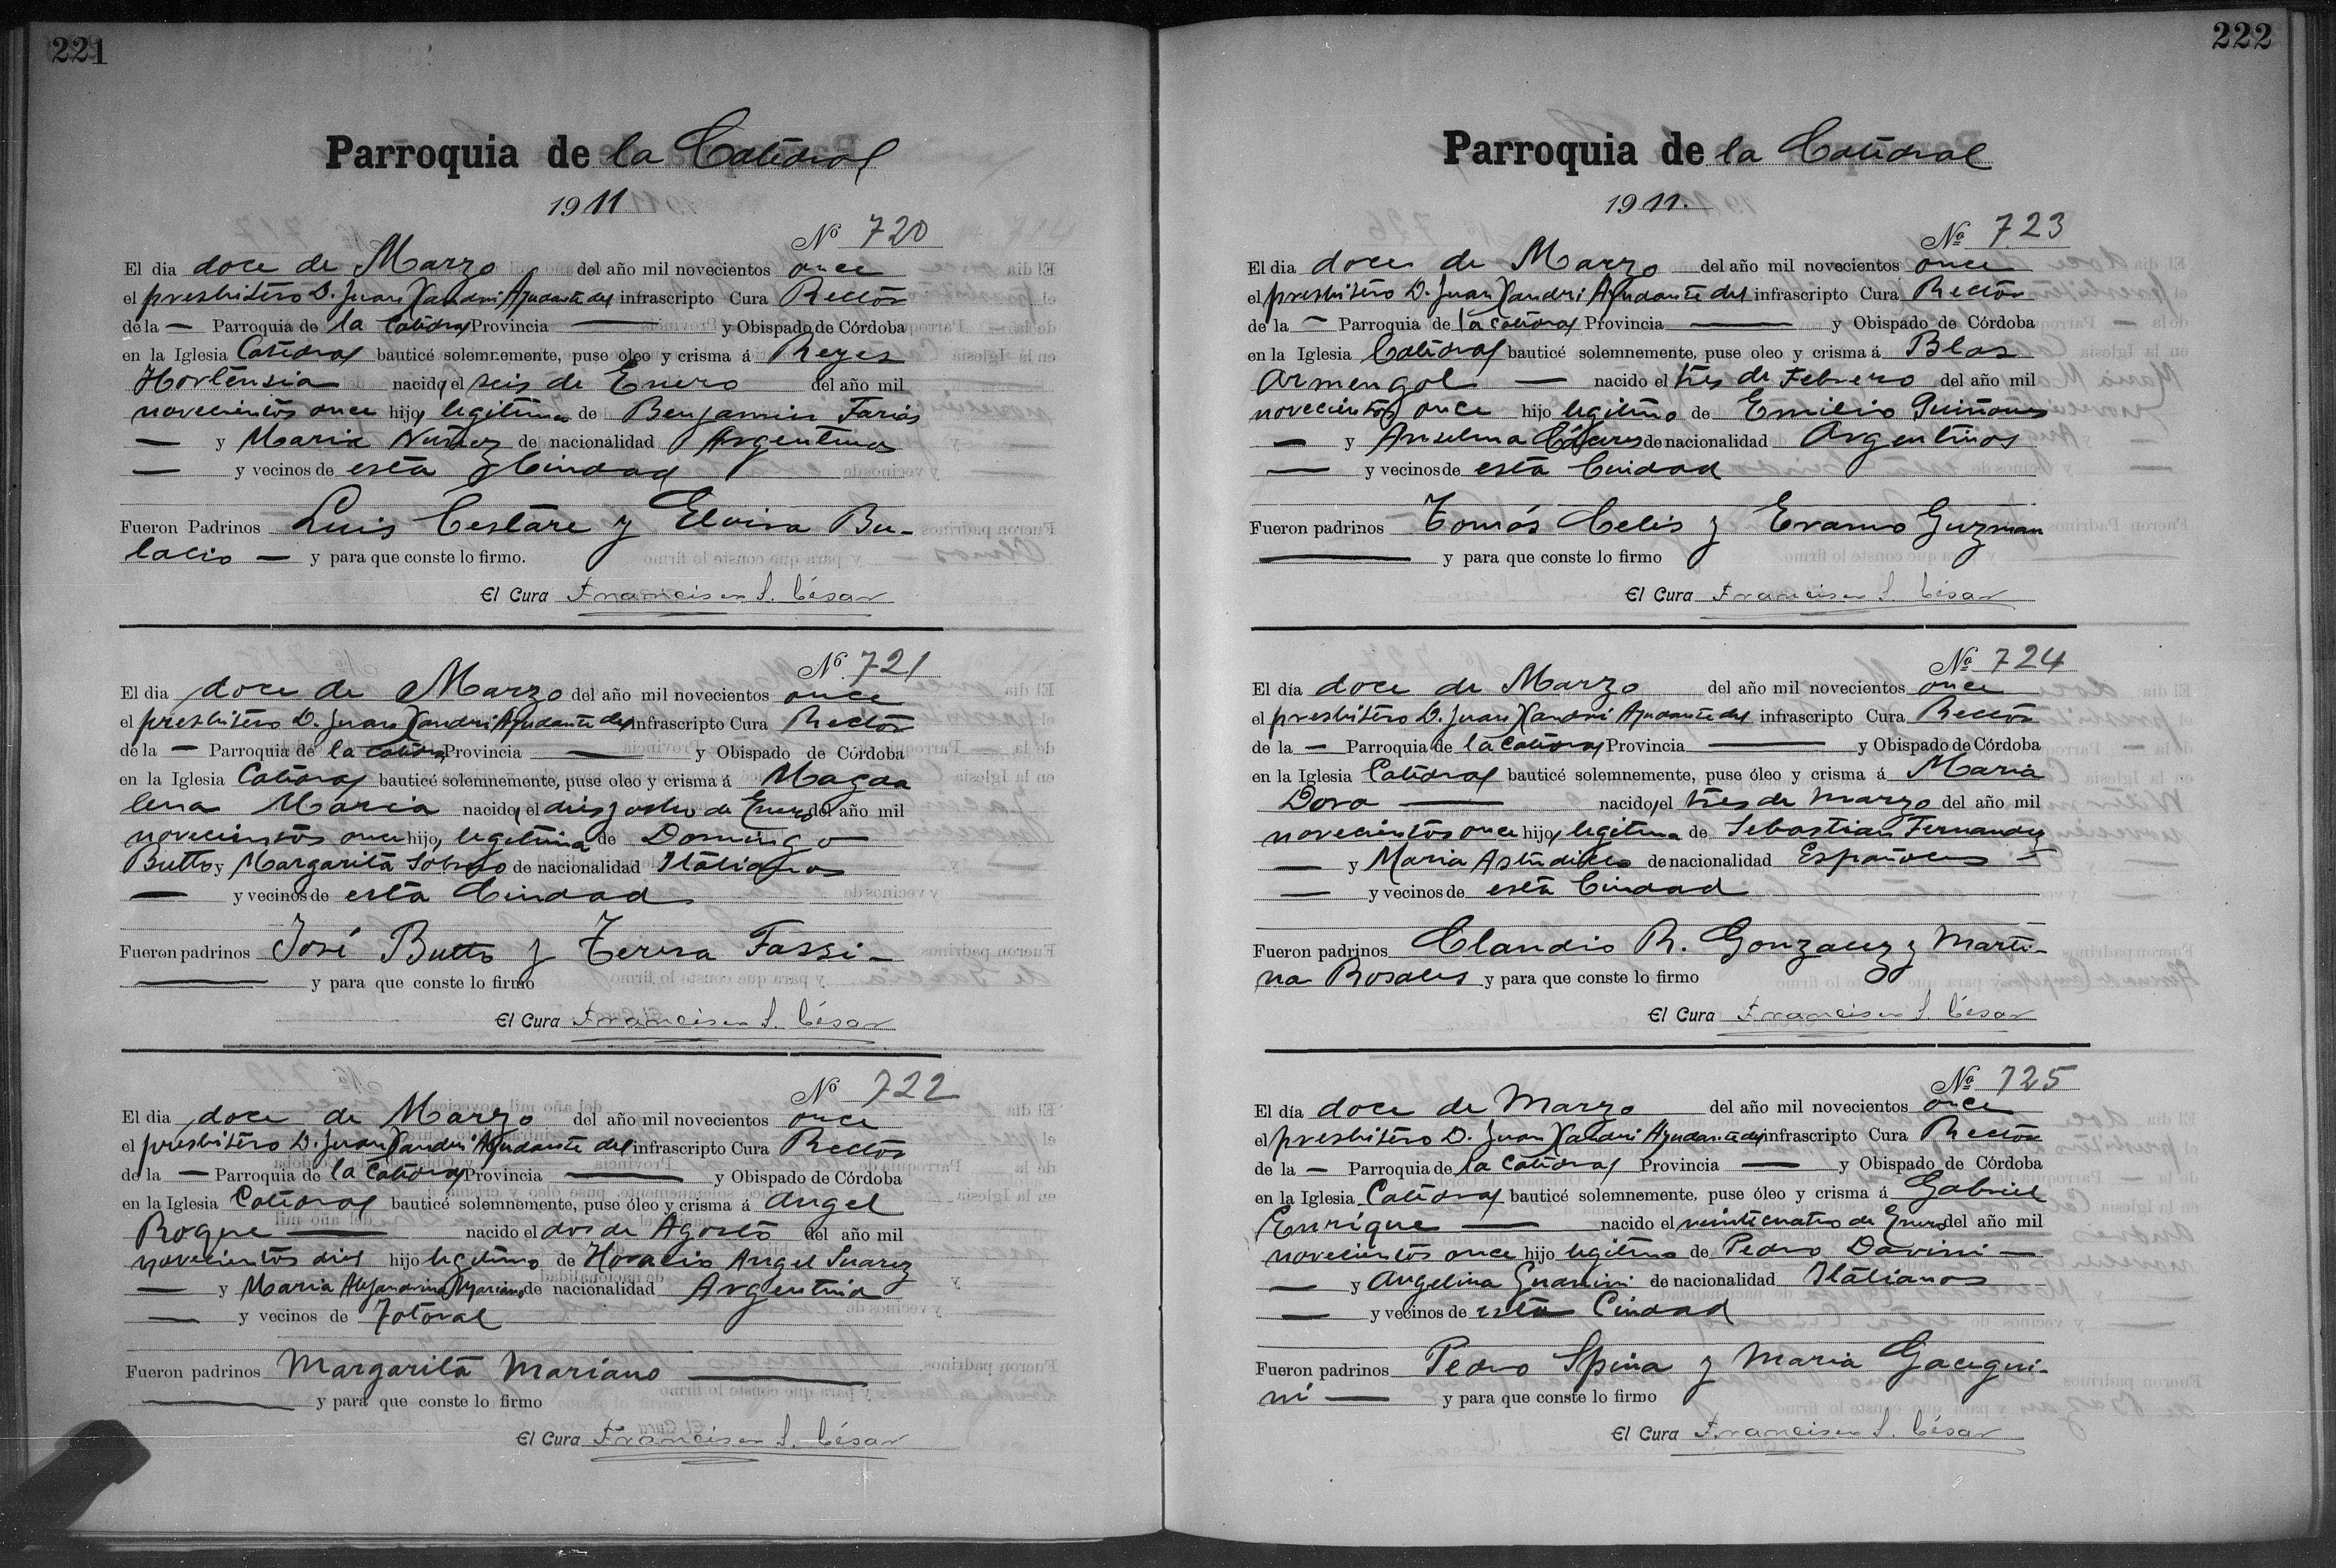 221
Parroquia de la Catedral
1911
Nº 720
El dia doce de Marzo del año mil novecientos once
el presbitero D. Juan Xandri Ayudante del infrascripto Cura Rector
de la — Parroquia de la Catedral Provincia — y Obispado de Córdoba
en la Iglesia Catedral bauticé solemnemente, puse oleo y crisma á Reyes
Hortensia nacida el seis de Enero del año mil
novecientos once hija legitima de Benjamin Farias
— y Maria Nuñez de nacionalidad Argentina
— y vecinos de esta Ciudad
Fueron Padrinos Luis Cestare y Eloisa Bu-
lacio — y para que conste lo firmo.
El Cura Francisco S. César
Nº 721
El dia doce de Marzo del año mil novecientos once
el presbitero D. Juan Xandri Ayudante del infrascripto Cura Rector
de la — Parroquia de la Catedral Provincia — y Obispado de Córdoba
en la Iglesia Catedral bauticé solemnemente, puse oleo y crisma á Magda
lena Maria nacida el dies y ocho de Enero del año mil
novecientos once hija legitima de Domingo
Butto y Margarita de nacionalidad Italianos
— y vecinos de esta Ciudad
Fueron padrinos José Butto y Teresa Fassi —
— y para que conste lo firmo
El Cura Francisco S. César
Nº 722
El dia doce de Marzo del año mil novecientos once
el presbitero D. Juan Xandri Ayudante del infrascripto Cura Rector
de la — Parroquia de la Catedral Provincia — y Obispado de Córdoba
en la Iglesia Catedral bauticé solemnemente, puse óleo y crisma á Angel
Roque — nacido el dos de Agosto del año mil
novecientos dies hijo legitimo de Horacio Angel Suarez
— y Maria Alejandrina Mariano de nacionalidad Argentina
— y vecinos de Totoral
Fueron padrinos Margarita Mariano —
— y para que conste lo firmo
El Cura Francisco S. César
222
Parroquia de la Catedral
1911.
Nº 723
El dia doce de Marzo del año mil novecientos once
el presbitero D. Juan Xandri Ayudante del infrascripto Cura Rector
de la — Parroquia de la Catedral Provincia — y Obispado de Córdoba
en la Iglesia Catedral bauticé solemnemente, puse oleo y crisma á Blas
Armengol — nacido el tres de Febrero del año mil
novecientos once hijo legitimo de Emilio Quiñones
— y Anselma Cáceres de nacionalidad Argentinos
— y vecinos de esta Ciudad
Fueron padrinos Tomás Celis y Eramo Guzman
— y para que conste lo firmo
El Cura Francisco S. César
Nº 724
El día doce de Marzo del año mil novecientos once
el presbitero D. Juan Xandri Ayudante del infrascripto Cura Rector
de la — Parroquia de la Catedral Provincia — y Obispado de Córdoba
en la Iglesia Catedral bauticé solemnemente, puse óleo y crisma á Maria
Dora — nacida el tres de Marzo del año mil
novecientos once hija legitima de Sebastian Fernandez
— y Maria Astudillo de nacionalidad Españoles —
— y vecinos de esta Ciudad
Fueron padrinos Claudio R. Gonzalez y Marti-
na Rosales y para que conste lo firmo
El Cura Francisco S. César
Nº 725
El día doce de Marzo del año mil novecientos once
el presbitero D. Juan Xandri Ayudante del infrascripto Cura Rector
de la — Parroquia de la Catedral Provincia — y Obispado de Córdoba
en la Iglesia Catedral bauticé solemnemente, puse óleo y crisma á Gabriel
Enrique — nacido el veinticuatro de Enero del año mil
novecientos once hijo legitimo de Pedro Davini —
— y Angelina Guarnini de nacionalidad Italianos
— y vecinos de esta Ciudad
Fueron padrinos Pedro Spina y Maria
ni — y para que conste lo firmo
El Cura Francisco S. César